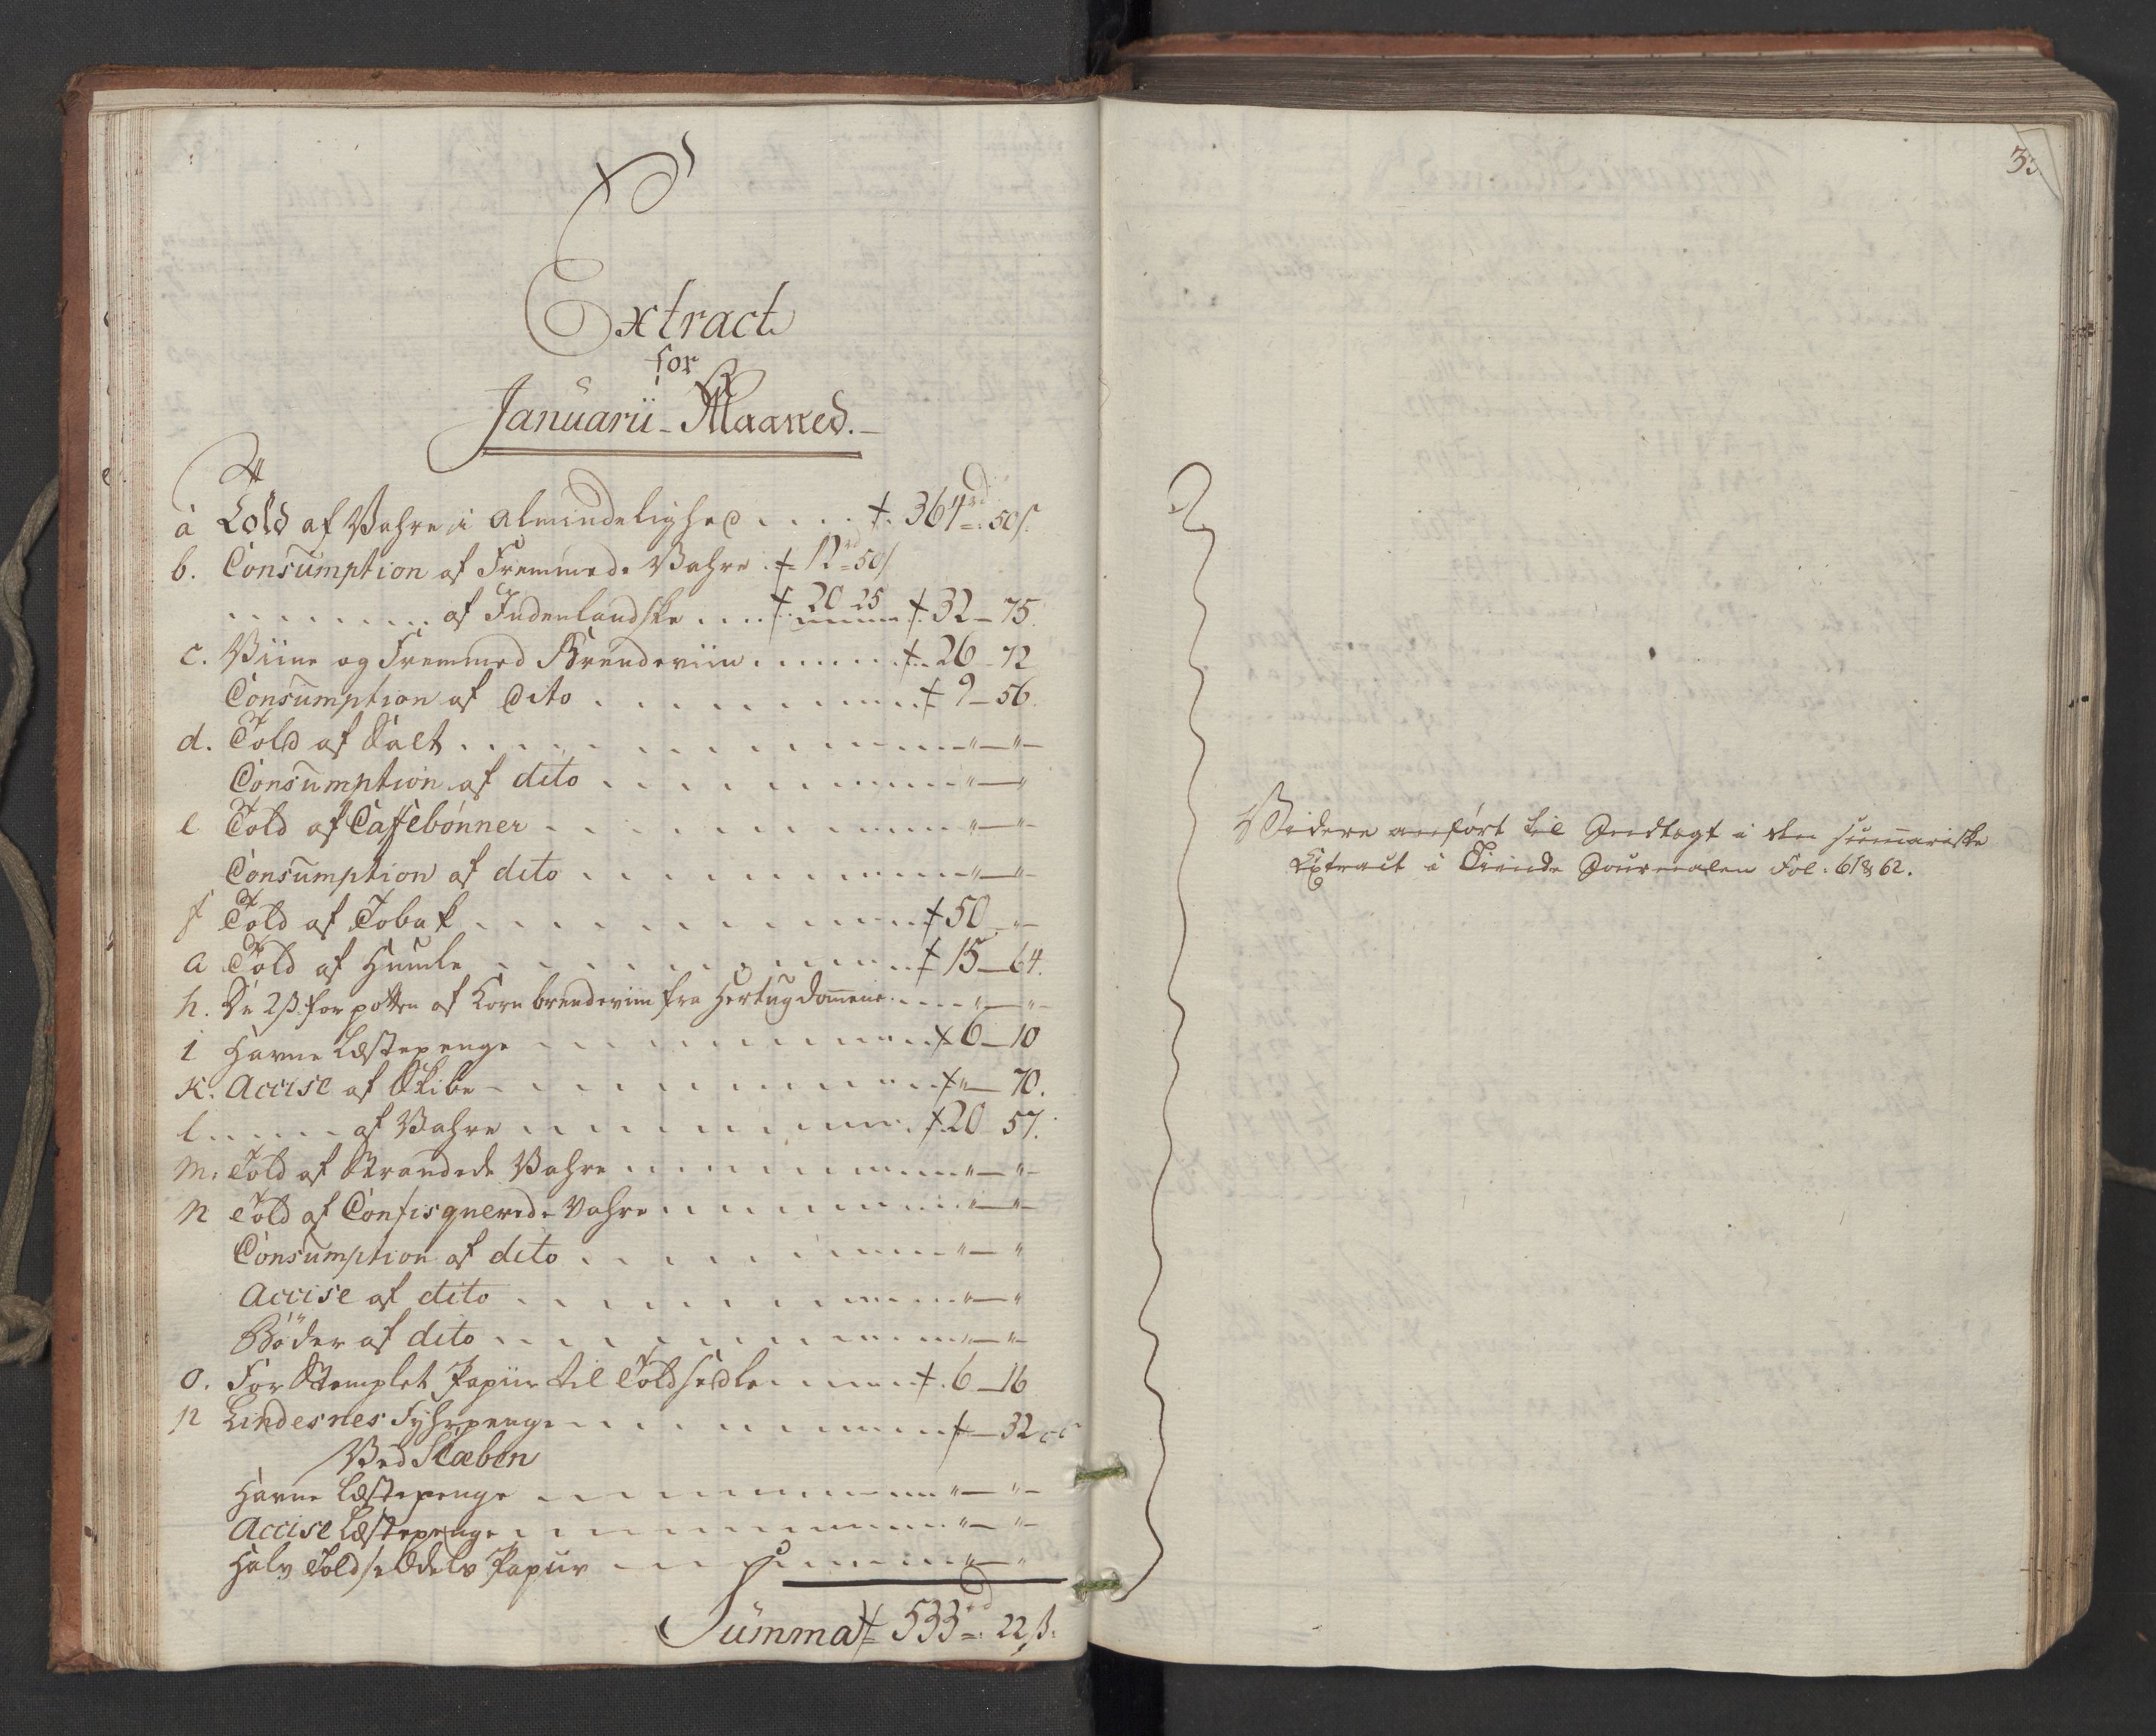 Extract
for
Januarii - Maaned. -
a Told af Vahre i Almindelighed .... ꝉ. 364 rd = 50 s.
b. Consumption af Fremmede Vahre . ꝉ 12 rd = 50 s
......... af Indenlandske .... ꝉ. 20 - 25 ꝉ. 32 - 75.
c. Viine og Fremmed Brendeviin ...... ꝉ. 26 - 72
Consumption af dito .......... ꝉ 9 - 56.
d. Told af Salt .......... " - " -
Consumption af dito .......... " - "
e Told af Caffebønner .......... " - " -
Consumption af dito .......... " - " -
f Told af Tobak .......... ꝉ 50 - " -
a Told af Humle .......... ꝉ 15 - 64.
h. De 2 β. for potten af Korn brendeviin fra Hertugdomene ..... " - " -
i Havne Læstepenge .......... ꝉ 6 - 10
K. Accise af Skibe .......... ꝉ " - 70.
l ...... af Vahre .......... ꝉ. 20 57.
m. Told af Strandede Vahre .......... " - " -
n Told af Confisquerede Vahre .......... " - " -
Consumption af dito .......... " - "
Accise af dito .......... " - "
Bøder af dito .......... " - " -
o. For Stemplet Papiir til Toldsedle ...... ꝉ. 6 - 16
p Lindesnes Fyhrpenge .......... ꝉ - 32
Ved Stæben
Havne Læstepenge .......... " - " -
Accise Læstepenge .......... " - " -
Halv Toldseddels Papiir .......... " - "
Summa ꝉ 533 rd = 22 β.
33
Videre anført til Indtægt i den sumariske
Extract i Tiende Journalen Fol. 61 & 62.